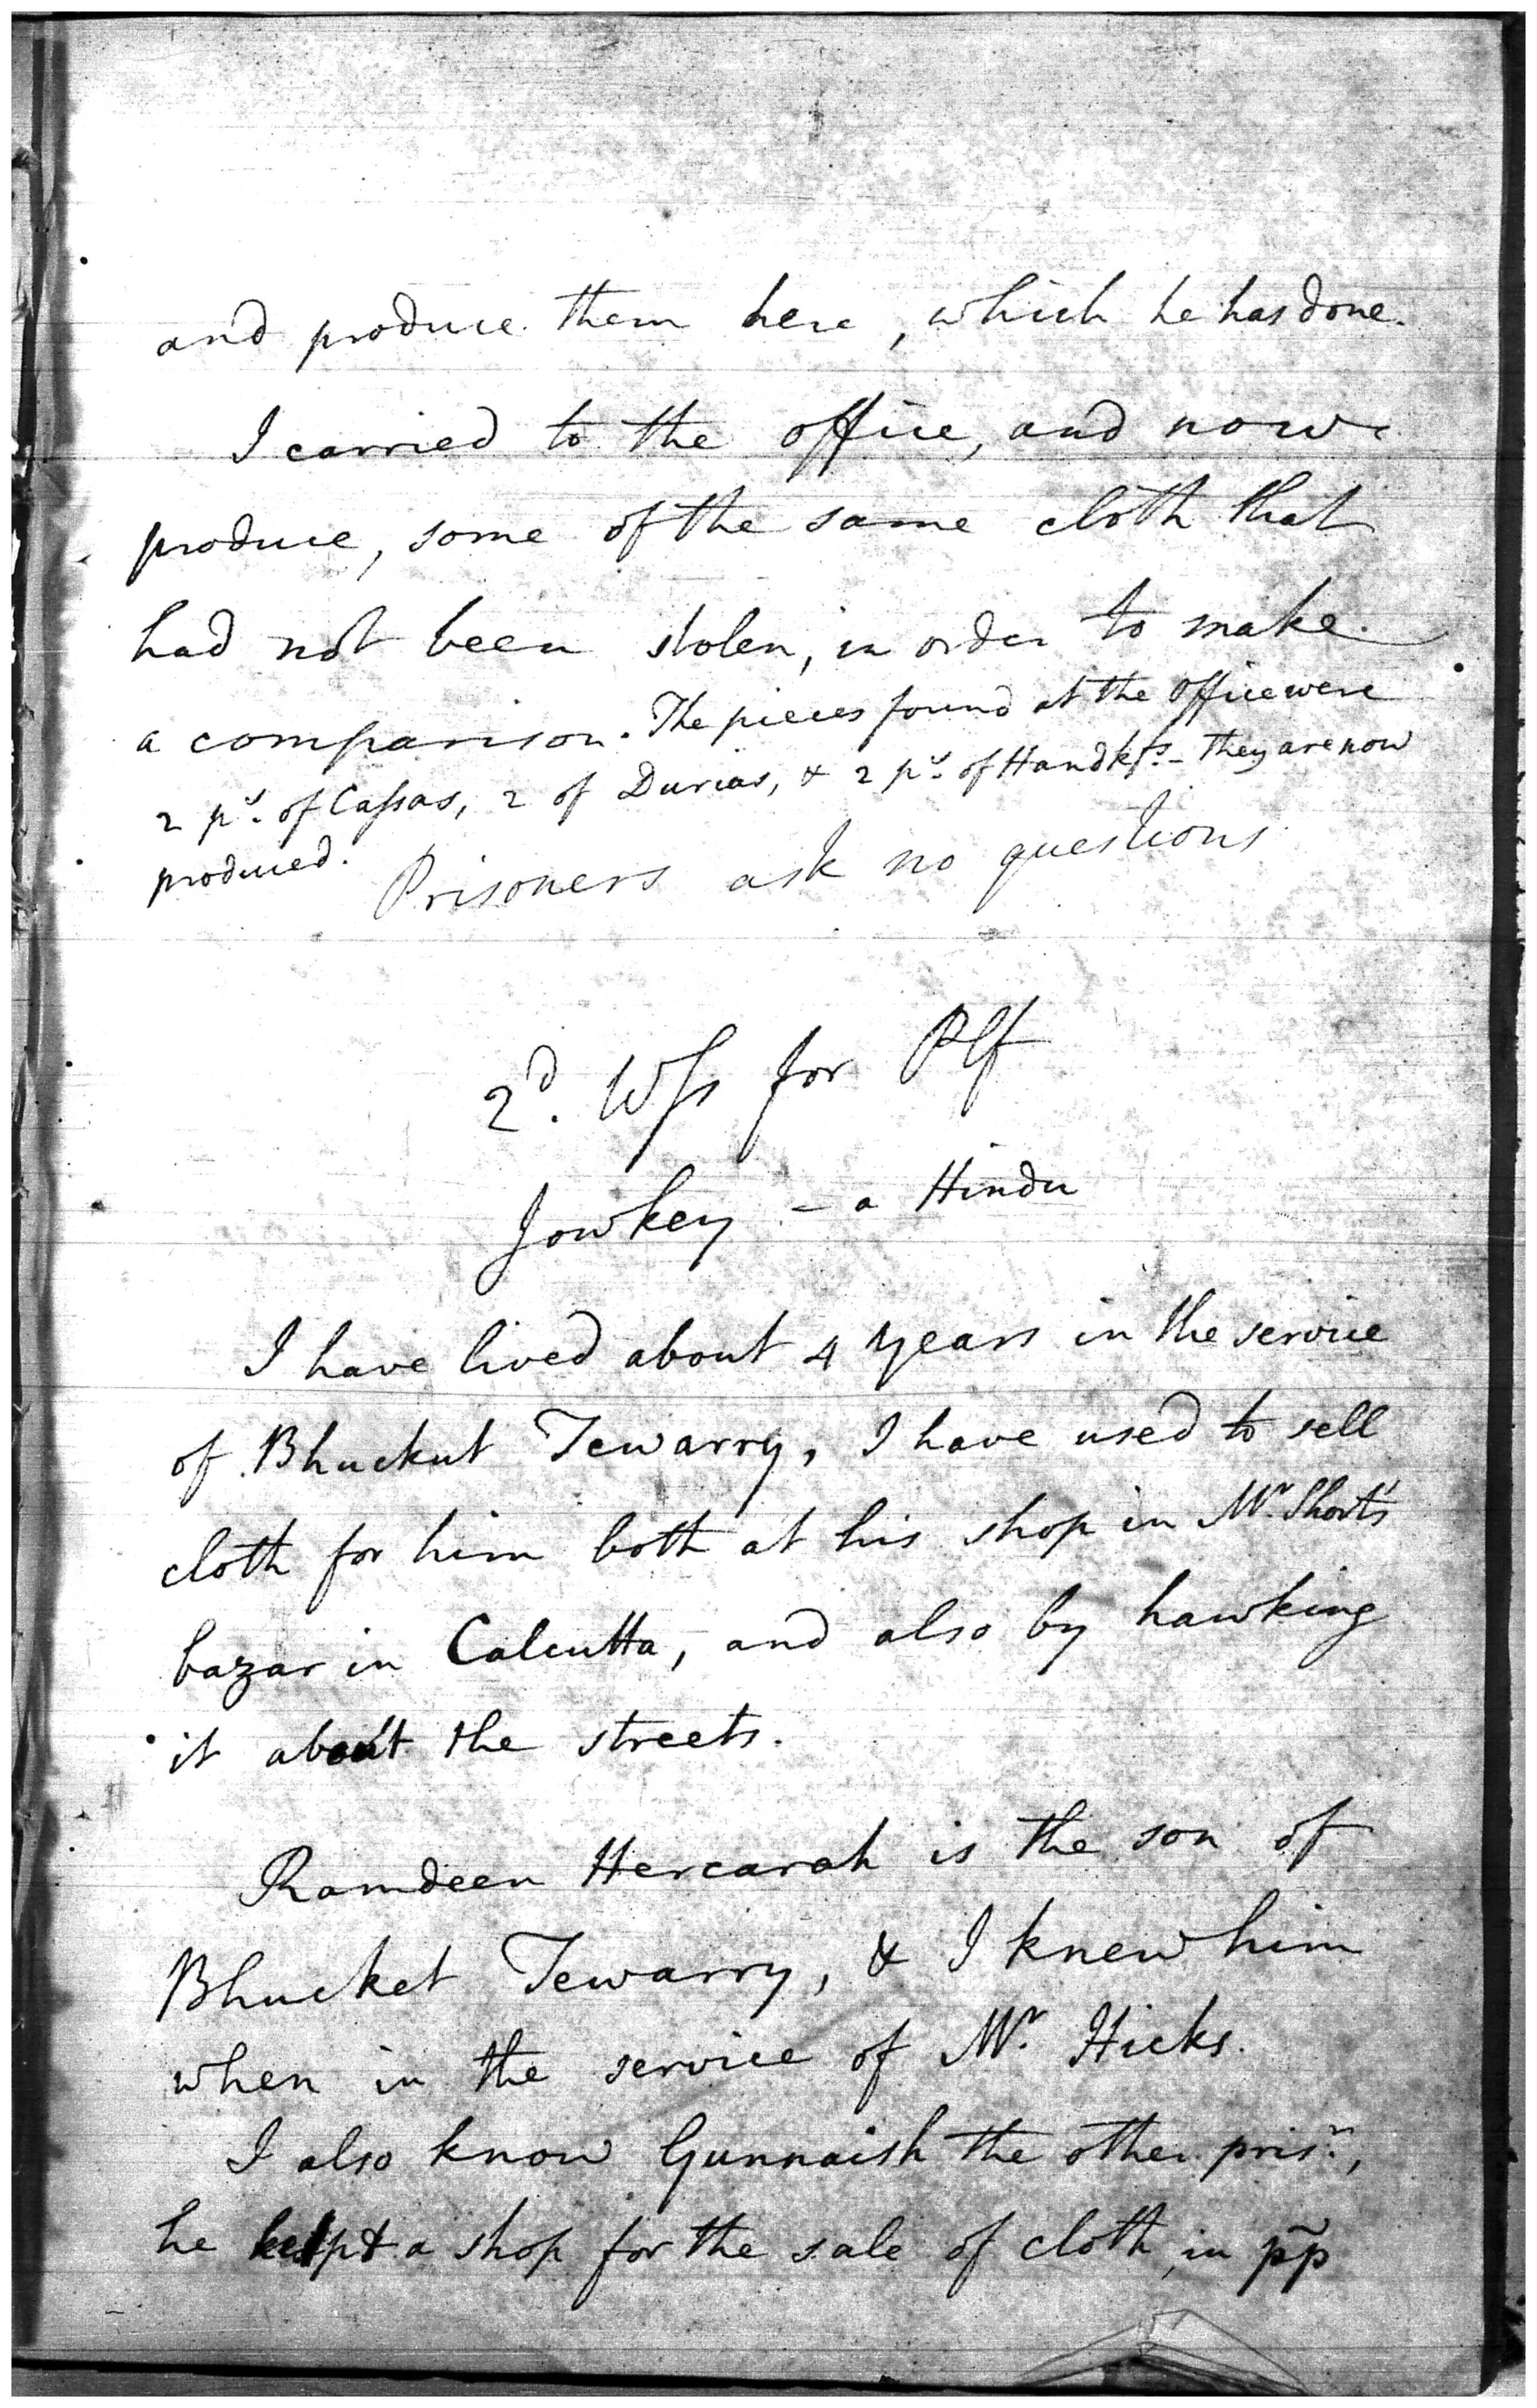 and produce them here, which he has done.
I carried to the office, and now
produce, some of the same cloth that
had not been stolen, in order to make
a comparison. The pieces found at the office were
2 ps. of Cassas, 2 of Durias, & 2 ps. of Handkfs. - They are now
produced.
Prisoners ask no questions
2d. Wss for Plf
Jowkey - a Hindu
I have lived about 4 years in the service
of Bhuckut Tewarry, I have used to sell
cloth for him both at his shop in Mr. Short's
bazar in Calcutta, and also by hawking
it about the streets.
Ramdeen Hercarah is the son of
Bhucket Tewarry, & I knew him
when in the service of Mr. Hicks.
I also know Gunnaish the other prisr.,
he kept a shop for the sale of cloth, in pp